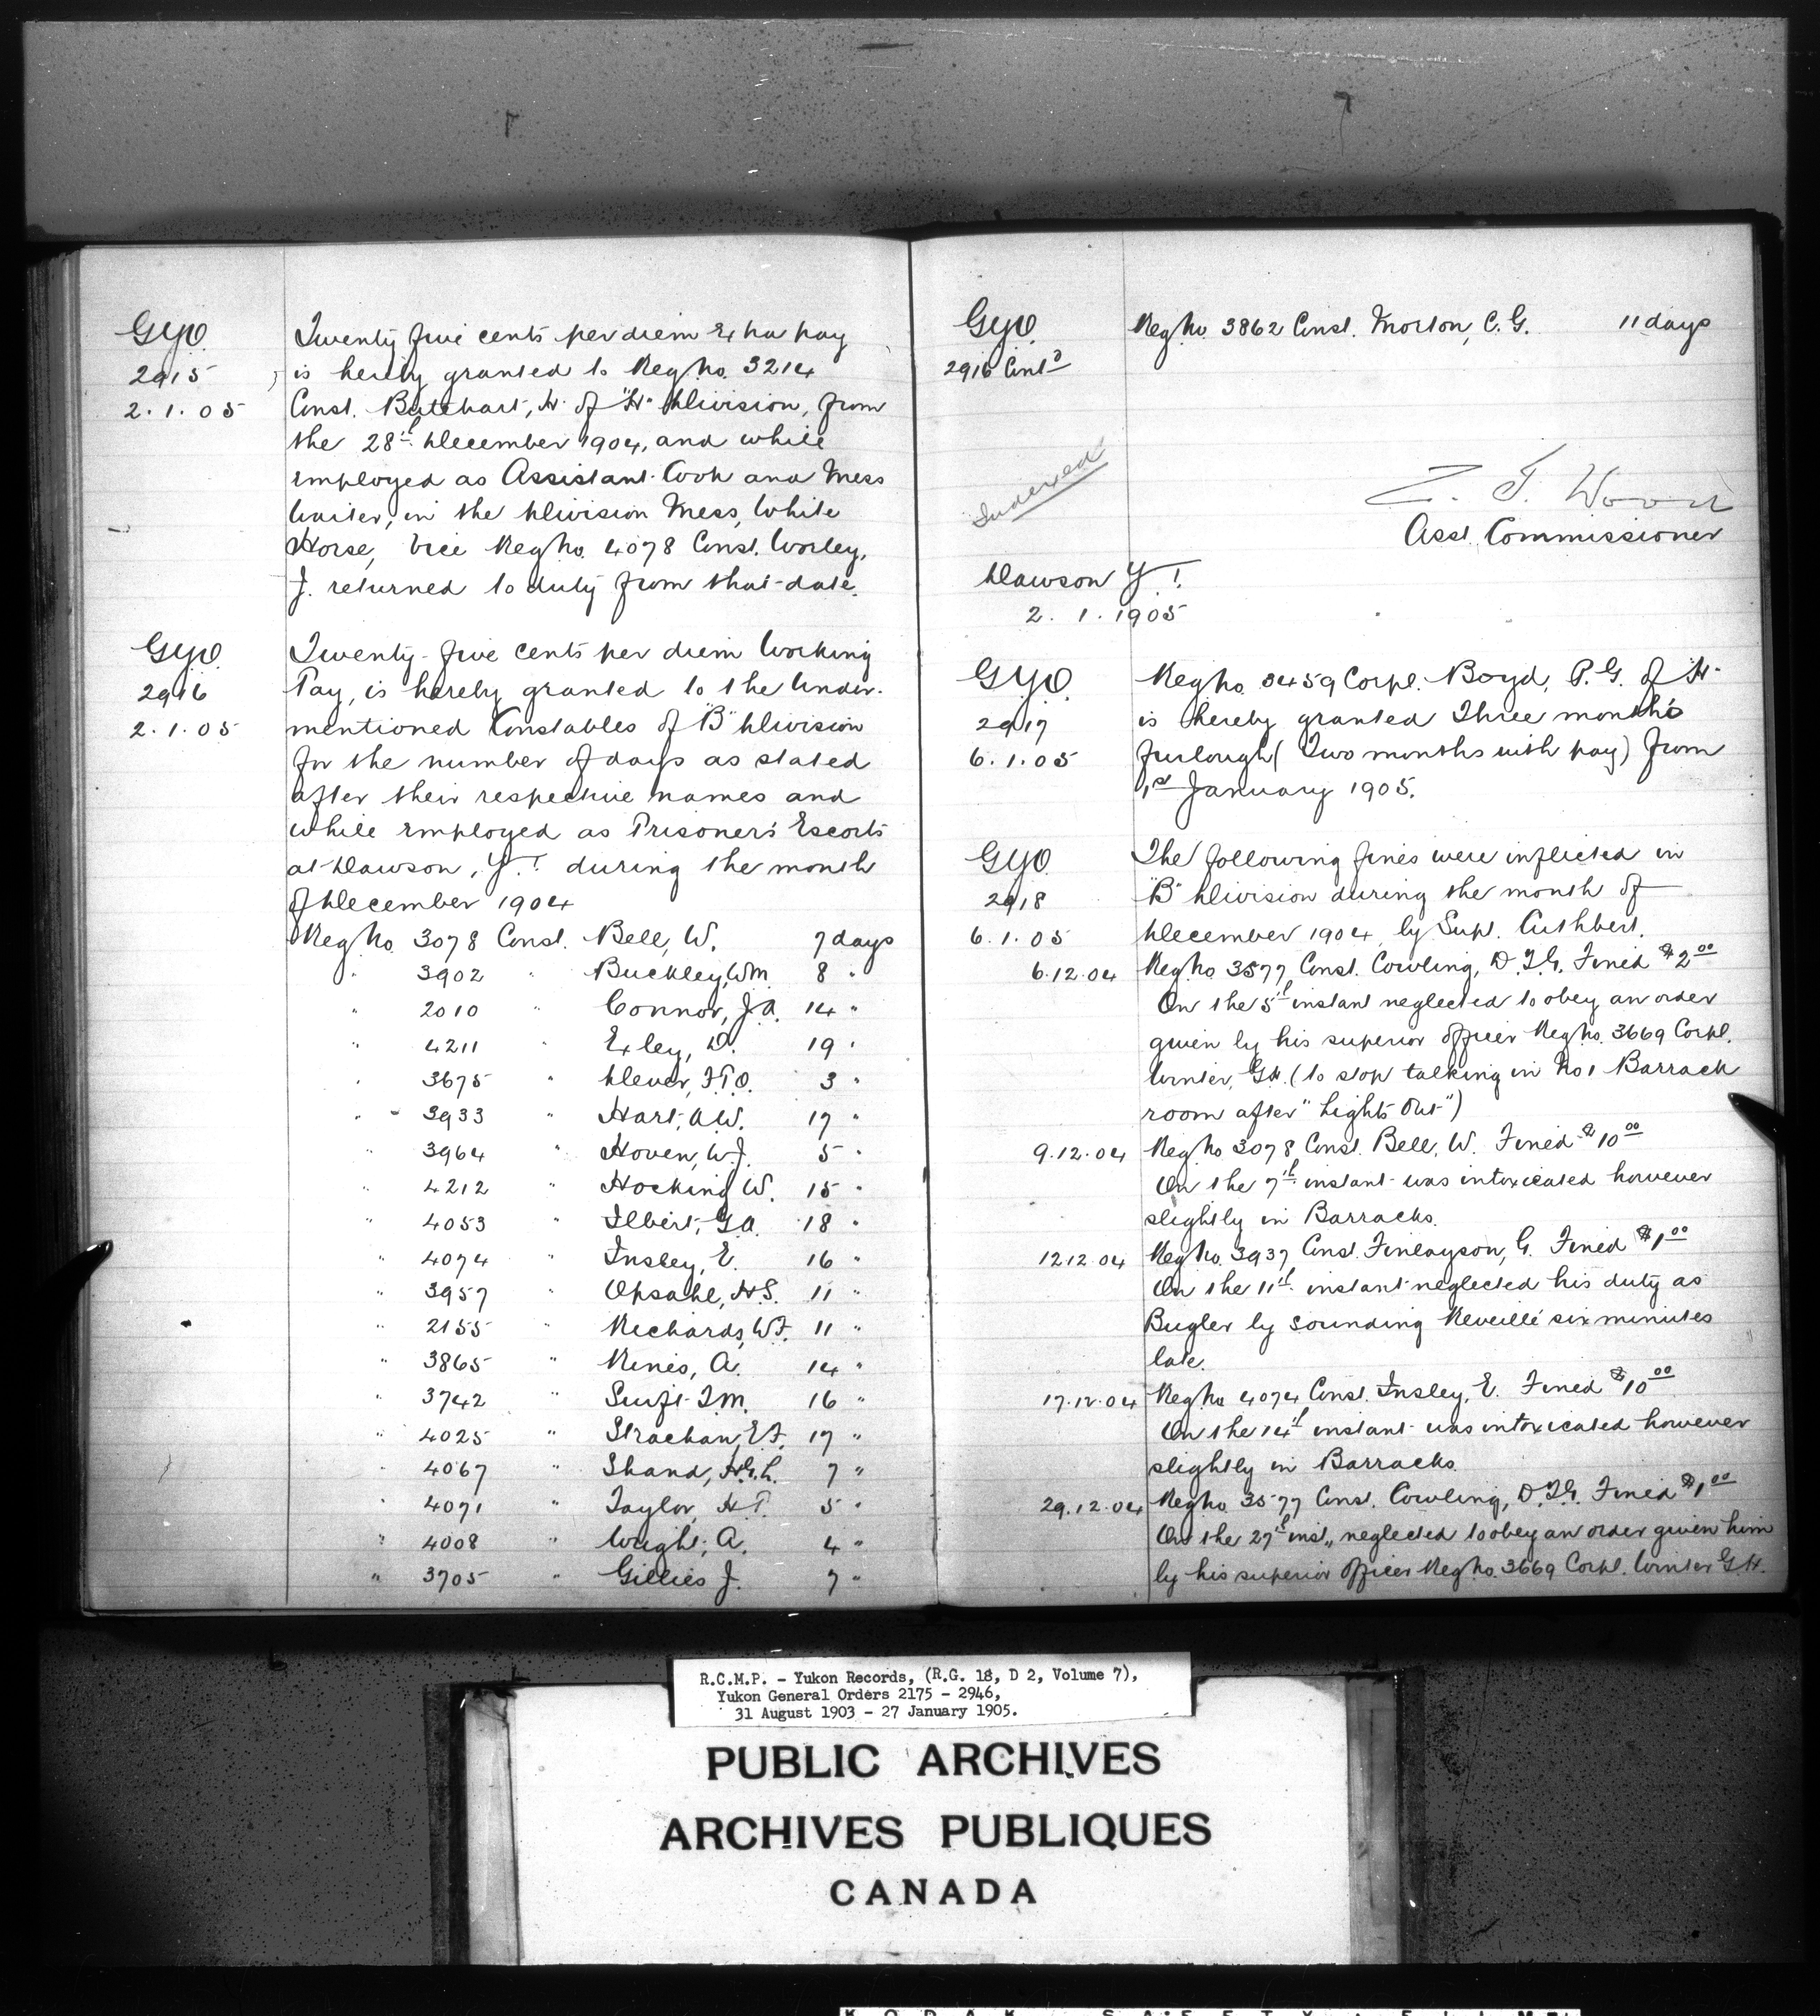 G.Y.O.
2915
2.1.05
Twenty five cents per diem Extra pay
is hereby granted to Reg. No. 3214
Const. Butchart, H. of "H" Division, from
the 28th December 1904, and while
employed as Assistant Cook and Mess
Waiter, in the Division Mess, White
Horse, Vice Reg No. 4078 Const. Worley,
J. returned to duty from that date.
G.Y.O.
2916
2.1.05
Twenty-five cents per diem Working
Pay, is hereby granted to the Under-
mentioned Constables of "B" Division
for the number of days as stated
after their respective names and
while employed as Prisoner's Escorts
at Dawson, Y.T. during the month
of December 1904
Reg No. 3078 Const. Bell, W. 7 days
" 3902 " Buckley, Wm. 8 "
" 2010 " Connor, J.A. 14 "
" 4211 " Exley, D. 19 "
" 3675 " F.T.O. 3 "
" 3933 " Hart, A.W. 17 "
" 3964 " Hoven, W.J. 5 "
" 4212 " Hocking W. 15 "
" 4053 " Ilbert, G.A. 18 "
" 4074 " Insley, E. 16 "
" 3957 " Opsahl, H.S. 11 "
" 2155 " Richards, W.F. 11 "
" 3865 " A. 14 "
" 3742 " Swift T.M. 16 "
" 4025 " Strachan, E.F. 17 "
" 4067 " Shand, 7 "
" 4071 " Taylor, H.T. 5 "
" 4008 " Wright, A. 4 "
" 3705 " Gillies J. 7 "
G.Y.O.
2916 Contd
Reg. No. 3862 Const. Morton, C.G. 11 days
Indexed
Z. T. Wood
Asst. Commissioner
Dawson Y.T.
2.1.1905
G.Y.O.
2917
6.1.05
Reg No. 3459 Corpl. Boyd, P.G. of H.
is hereby granted Three month's
furlough (Two months with pay) from
1st January 1905.
G.Y.O.
2918
6.1.05
The following fines were inflicted in
"B" Division during the month of
December 1904, by Supt. Cuthbert.
6.12.04 Reg. No. 3577 Const. Cowling, D.T.G. Fined $2.00
On the 5th instant neglected to obey an order
given by his superior officer Reg. No. 3669 Corpl.
Winter, G.H. (to stop talking in No 1 Barrack
room after "Lights Out")
9.12.04 Reg. No 3078 Const. Bell, W. Fined $10.00
On the 7th instant was intoxicated however
slightly in Barracks.
12.12.04 Reg. No. 3937 Const. Finlayson, G. Fined $1.00
On the 11th instant neglected his duty as
Bugler by Sounding Reveille six minutes
late.
17.12.04 Reg No 4074 Const. Insley, E. Fined $10.00
On the 14th instant was intoxicated however
slightly in Barracks
29.12.04 Reg No. 3577 Const. Cowling, D.T.G. Fined $1.00
On the 27th inst., neglected to obey an order given him
by his superior Officer Reg No. 3669 Corpl. Winter G.H.
R.C.M.P. - Yukon Records, (R.G. 18, D 2, Volume 7),
Yukon General Orders 2175 - 2946,
31 August 1903 - 27 January 1905.
PUBLIC ARCHIVES
ARCHIVES PUBLIQUES
CANADA